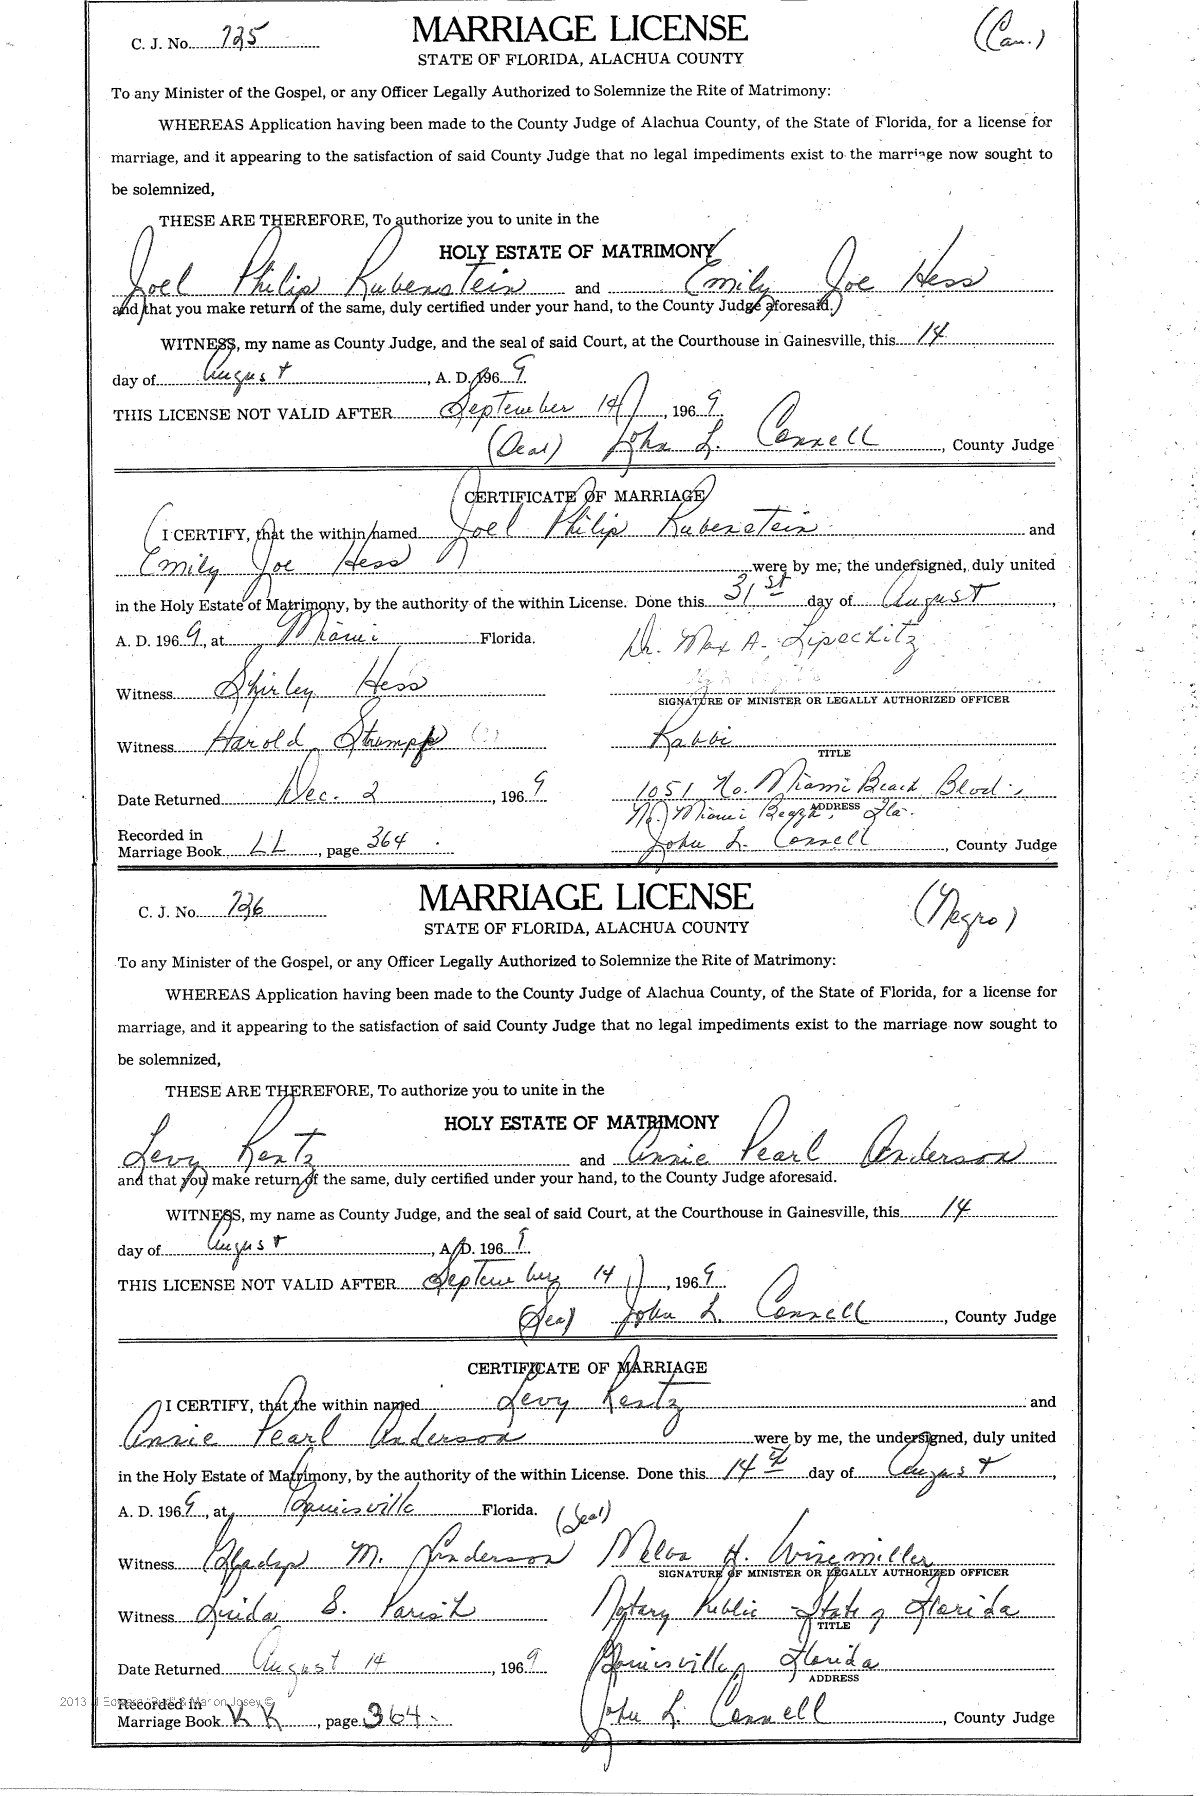 C. J. No. 725
MARRIAGE LICENSE
(Cau.)
STATE OF FLORIDA, ALACHUA COUNTY
To any Minister of the Gospel, or any Officer Legally Authorized to Solemnize the Rite of Matrimony:
WHEREAS Application having been made to the County Judge of Alachua County, of the State of Florida, for a license for
marriage, and it appearing to the satisfaction of said County Judge that no legal impediments exist to the marriage now sought to
be solemnized,
THESE ARE THEREFORE, To authorize you to unite in the
HOLY ESTATE OF MATRIMONY
Joel Philip Rubenstein and Emily Joe Hess
and that you make return of the same, duly certified under your hand, to the County Judge aforesaid.
WITNESS, my name as County Judge, and the seal of said Court, at the Courthouse in Gainesville, this 14
day of August, A. D. 1969
THIS LICENSE NOT VALID AFTER September 14, 1969
(Seal) John L. Connell, County Judge
CERTIFICATE OF MARRIAGE
I CERTIFY, that the within named Joel Philip Rubenstein and
Emily Joe Hess were by me, the undersigned, duly united
in the Holy Estate of Matrimony, by the authority of the within License. Done this 31st day of August,
A. D. 1969, at Miami Florida.
Dr. Max A. Lipschitz
Witness Shirley Hess
SIGNATURE OF MINISTER OR LEGALLY AUTHORIZED OFFICER
Witness Harold Stumpf
Rabbi
TITLE
Date Returned Dec. 2, 1969
1051 No. Miami Beach Blvd.,
ADDRESS
No. Miami Beach, Fla.
Recorded in
Marriage Book LL, page 364.
John L. Connell, County Judge
C. J. No. 726
MARRIAGE LICENSE
(Negro)
STATE OF FLORIDA, ALACHUA COUNTY
To any Minister of the Gospel, or any Officer Legally Authorized to Solemnize the Rite of Matrimony:
WHEREAS Application having been made to the County Judge of Alachua County, of the State of Florida, for a license for
marriage, and it appearing to the satisfaction of said County Judge that no legal impediments exist to the marriage now sought to
be solemnized,
THESE ARE THEREFORE, To authorize you to unite in the
HOLY ESTATE OF MATRIMONY
Levy Rentz and Annie Pearl Anderson
and that you make return of the same, duly certified under your hand, to the County Judge aforesaid.
WITNESS, my name as County Judge, and the seal of said Court, at the Courthouse in Gainesville, this 14
day of August, A. D. 1969
THIS LICENSE NOT VALID AFTER September 14, 1969
(Seal) John L. Connell, County Judge
CERTIFICATE OF MARRIAGE
I CERTIFY, that the within named Levy Rentz and
Annie Pearl Anderson were by me, the undersigned, duly united
in the Holy Estate of Matrimony, by the authority of the within License. Done this 14th day of August,
A. D. 1969, at Gainesville Florida.
(Seal)
Witness Gladys M. Anderson
Melva H. Winemiller
SIGNATURE OF MINISTER OR LEGALLY AUTHORIZED OFFICER
Witness Linda S. Parish
Notary Public State of Florida
TITLE
Date Returned August 14, 1969
Gainesville, Florida
ADDRESS
Recorded in
Marriage Book KK, page 364.
John L. Connell, County Judge